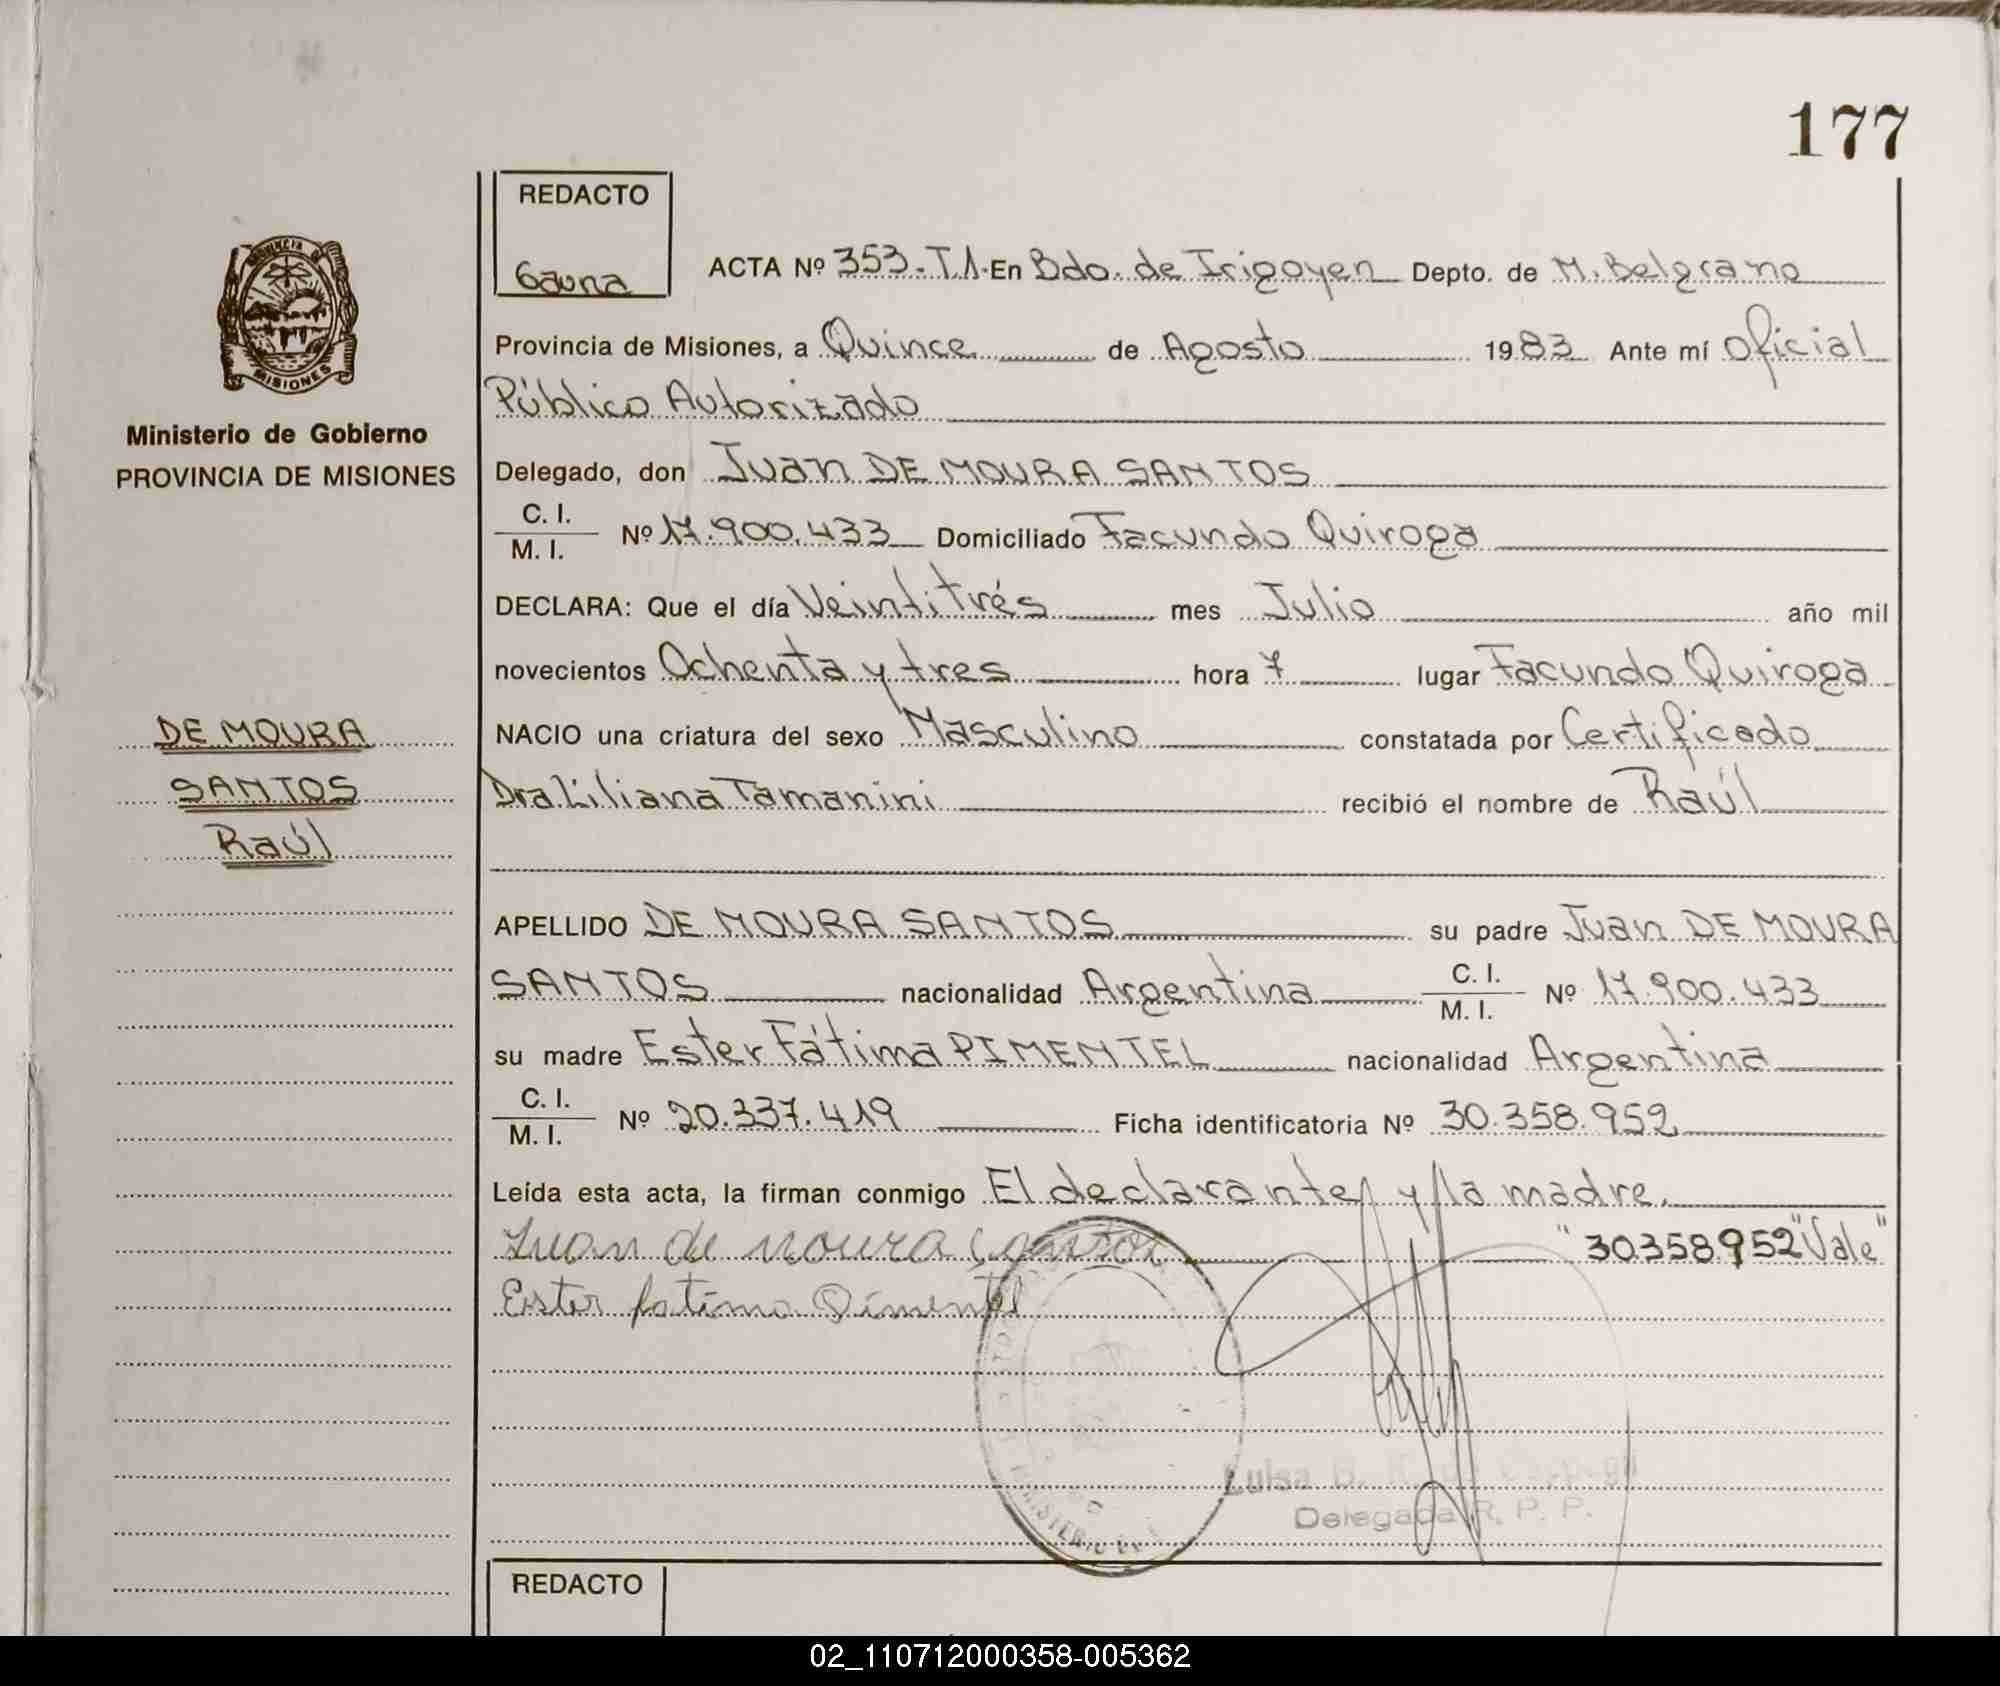 177
REDACTO
Gauna
ACTA Nº 353-T.1. En Bdo. de Irigoyen Depto. de M. Belgrano
Provincia de Misiones, a Quince de Agosto 1983 Ante mí Oficial
Público Autorizado
Delegado, don Juan DE MOURA SANTOS
C. I.
M. I. Nº 17.900.433 Domiciliado Facundo Quiroga
DECLARA: Que el día Veintitrés mes Julio año mil
novecientos Ochenta y tres hora 7 lugar Facundo Quiroga
NACIO una criatura del sexo Masculino constatada por Certificado
Dra. Liliana Tamanini recibió el nombre de Raúl
APELLIDO DE MOURA SANTOS su padre Juan DE MOURA
SANTOS nacionalidad Argentina C. I. M. I. Nº 17.900.433
su madre Ester Fátima PIMENTEL nacionalidad Argentina
C. I.
M. I. Nº 20.337.419 Ficha identificatoria Nº 30.358.952
Leída esta acta, la firman conmigo El declarante y la madre.
Juan de moura santos "30.358.952" Vale"
Ester fatima Pimentel
Luisa B.
Delegada R. P. P.
REDACTO
PROVINCIA
MISIONES
Ministerio de Gobierno
PROVINCIA DE MISIONES
DE MOURA
SANTOS
Raúl
MINISTERIO
02_110712000358-005362